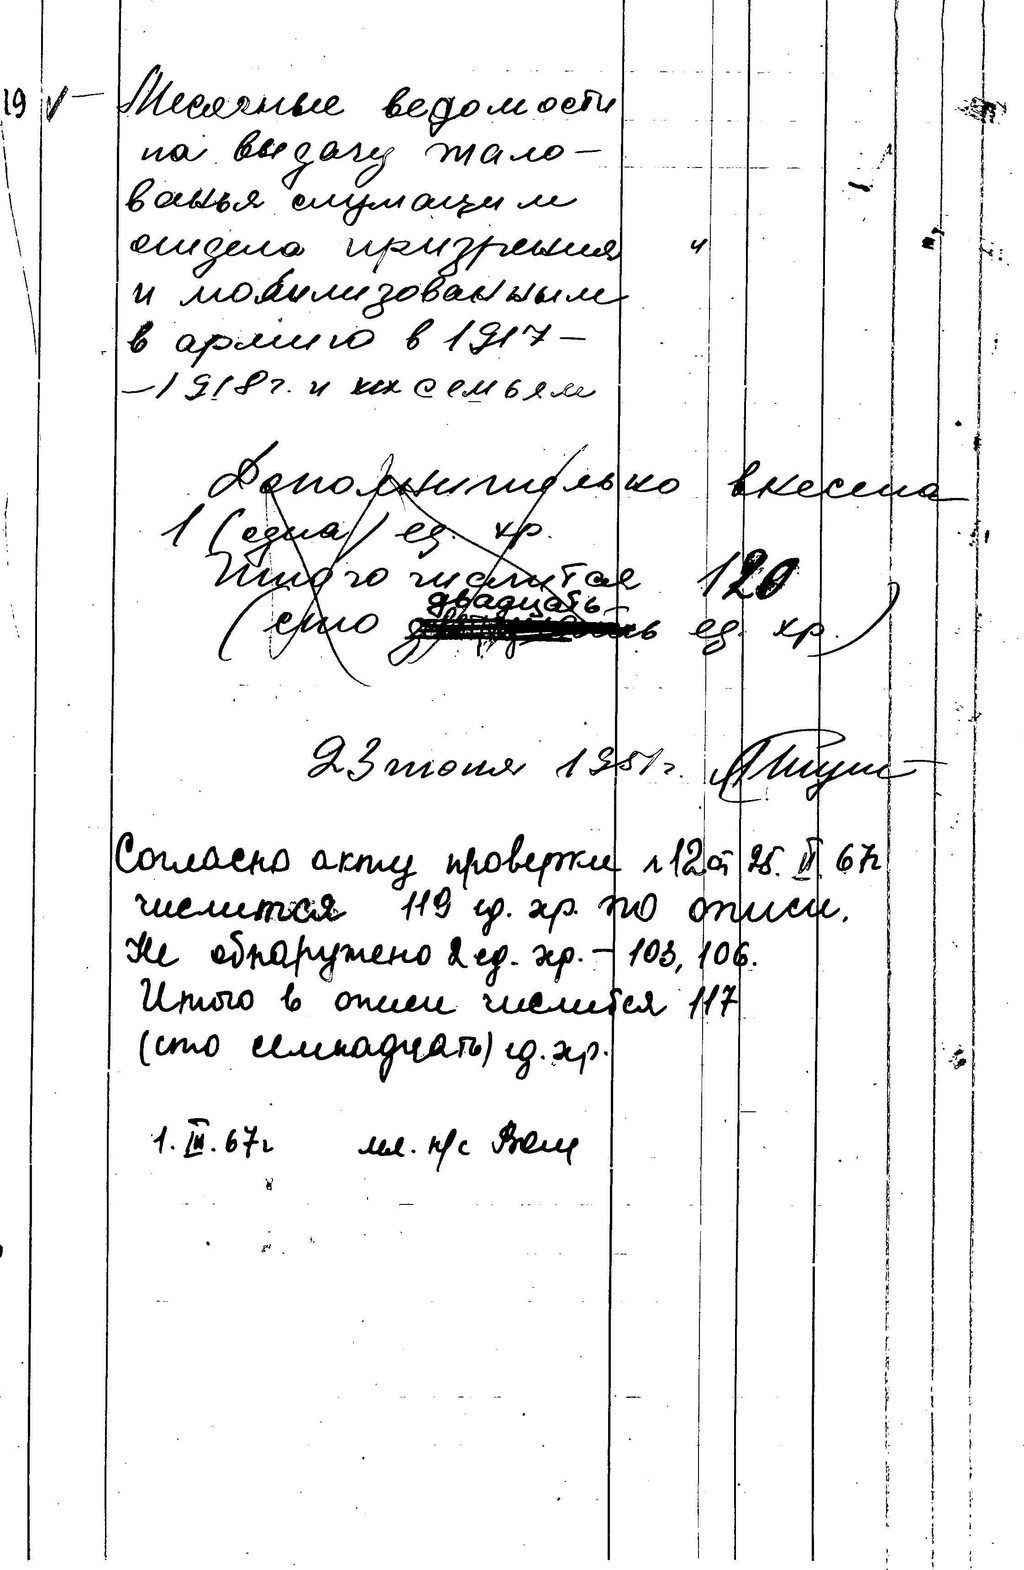 19 V — Месячные ведомости
на выдачу жало-
ванья служащим
отдела призрения "
и мобилизованным
в армию в 1917-
-1918г. и их семьям
Дополнительно внесена
1 (одна) ед. хр.
Итого числится 120
двадцать
(сто ед. хр.)
23 июня 1951г.
Согласно акту проверки н 12 от 25. II. 67г
числится 119 ед. хр. по описи.
Не обнаружено 2 ед. хр. - 103, 106.
Итого в описи числится 117
(сто семнадцать) ед. хр.
1. III. 67г мл. н/с